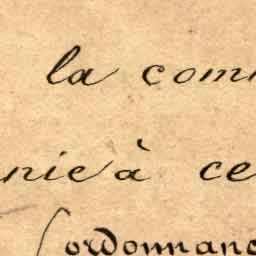 la com
nie à ce
ordonnanc